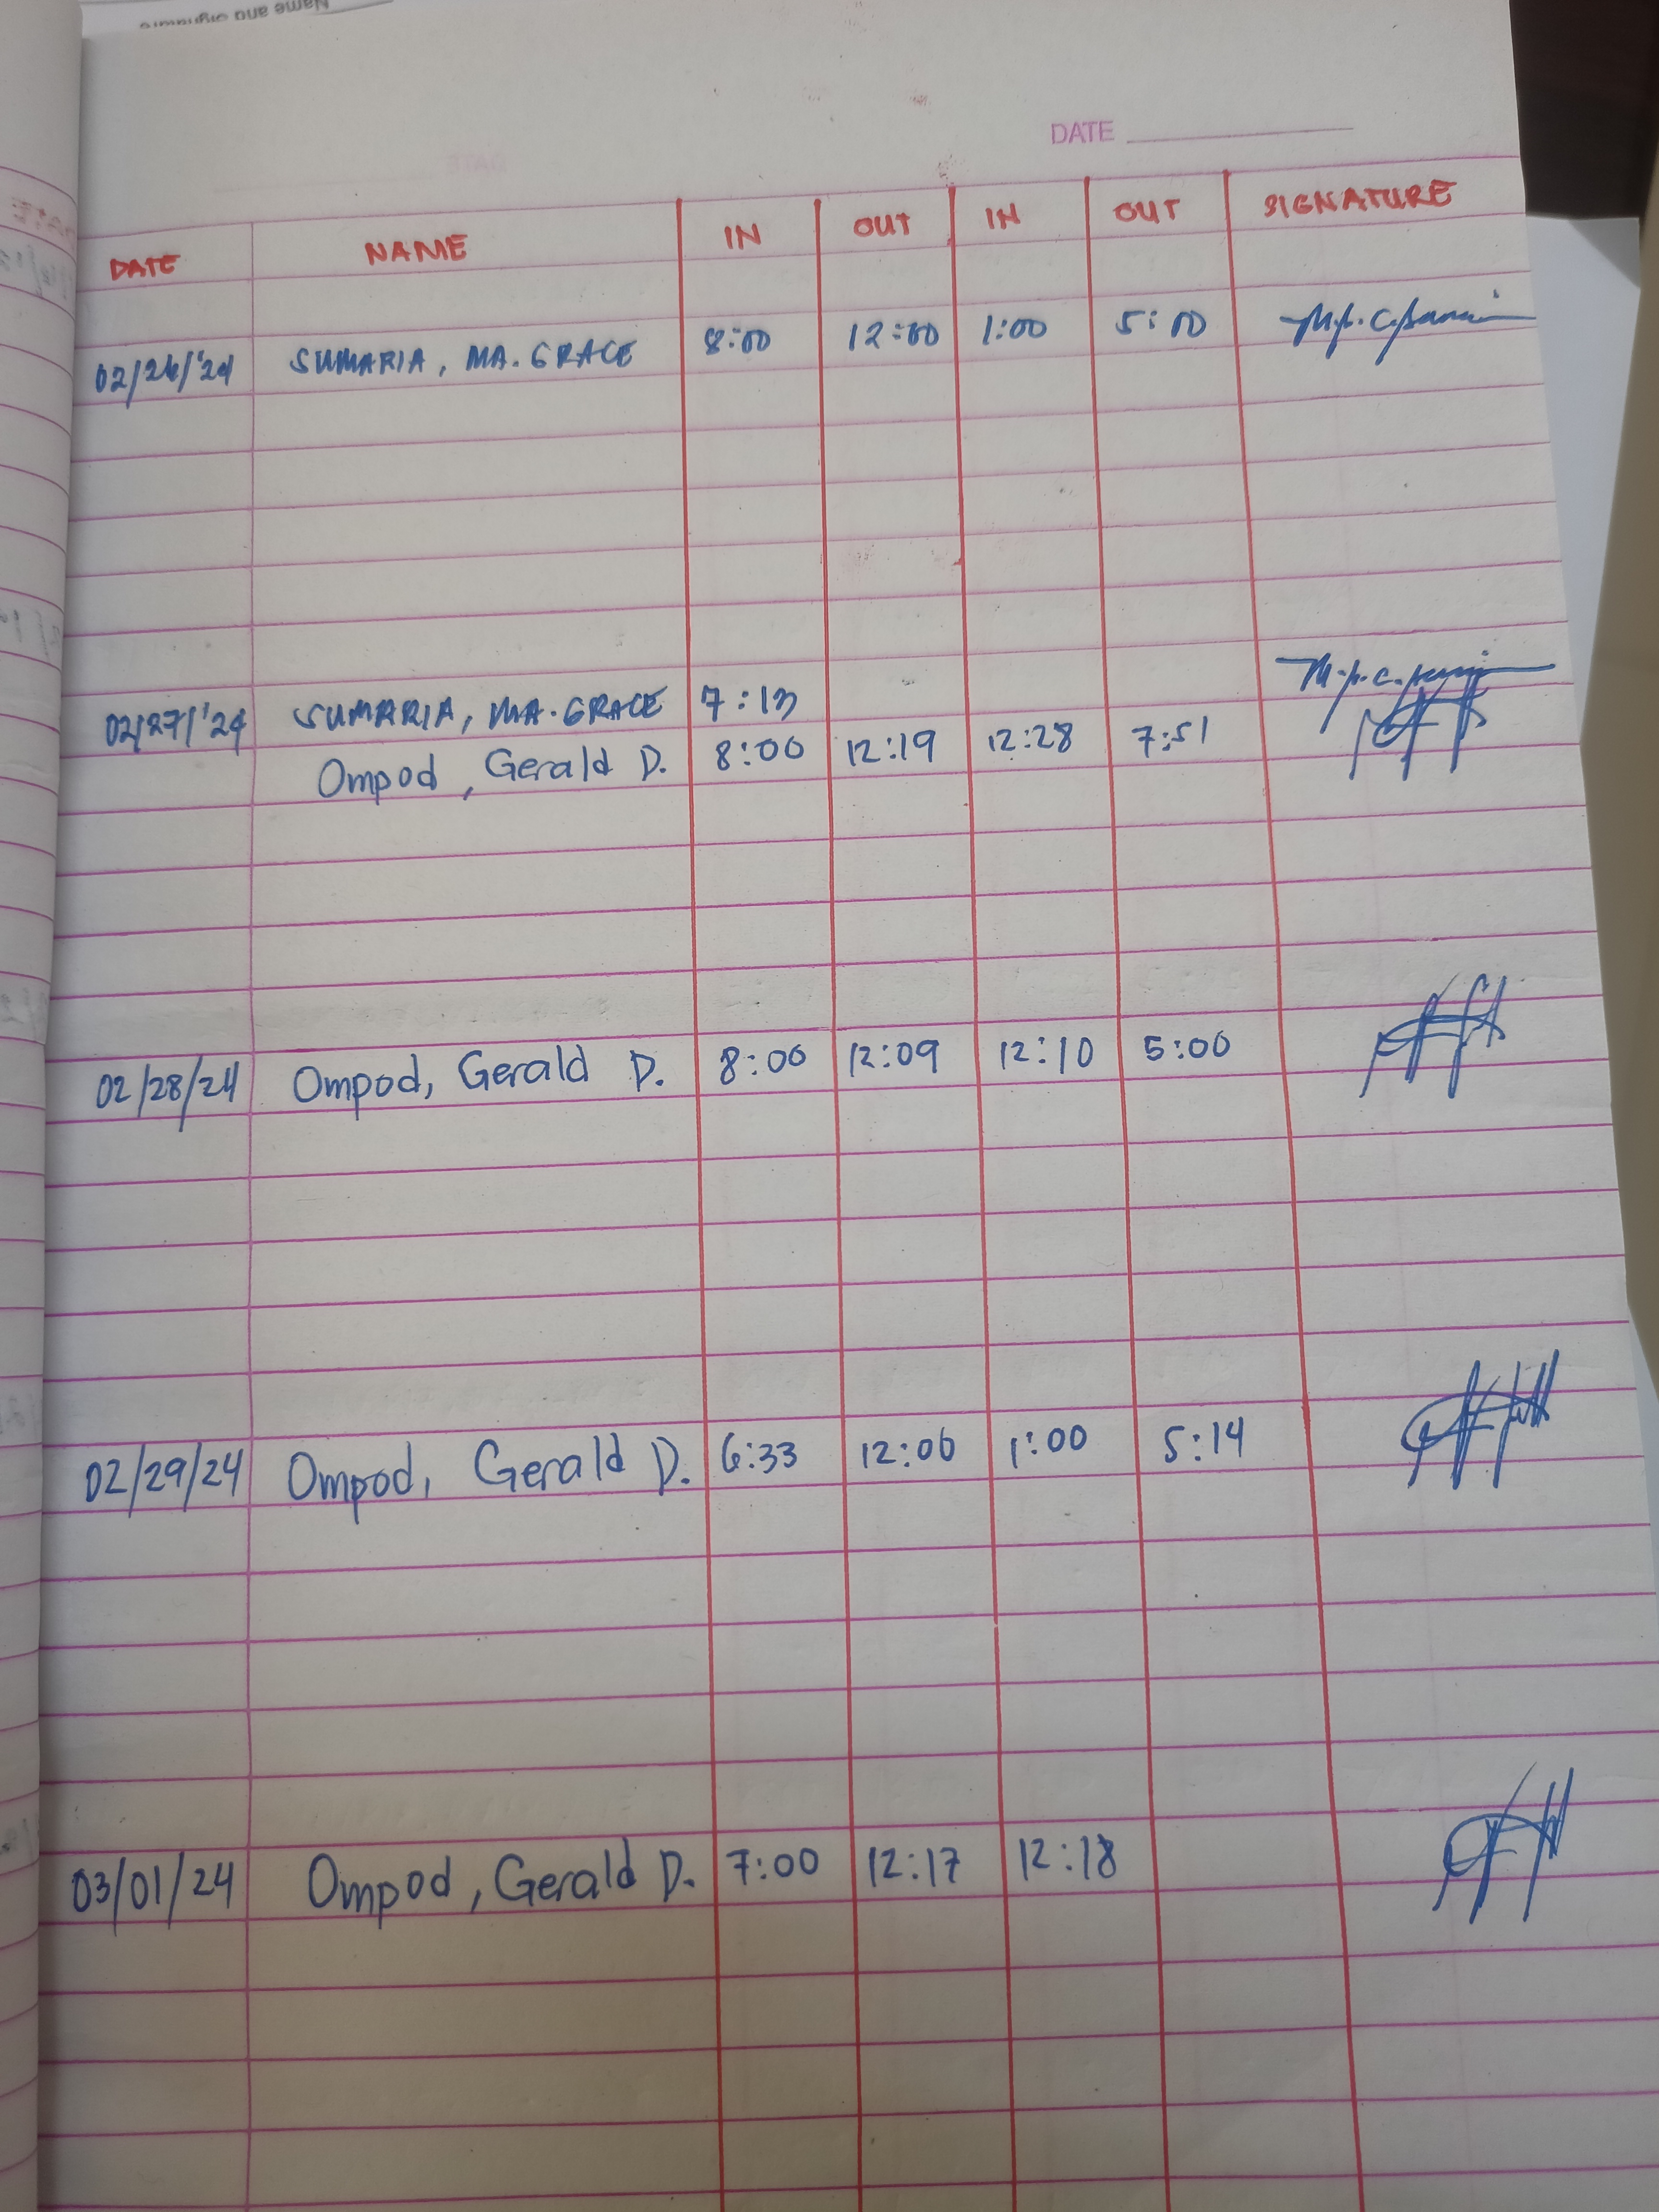 Name and Signature
DATE
DATE NAME IN OUT IN OUT SIGNATURE
02/26/'24 SUMARIA, MA. GRACE 8:00 12:00 1:00 5:00
02/27/'24 SUMARIA, MA. GRACE 7:13
Ompod, Gerald D. 8:00 12:19 12:28 7:51
02/28/24 Ompod, Gerald D. 8:00 12:09 12:10 5:00
02/29/24 Ompod, Gerald D. 6:33 12:06 1:00 5:14
03/01/24 Ompod, Gerald D. 7:00 12:17 12:18